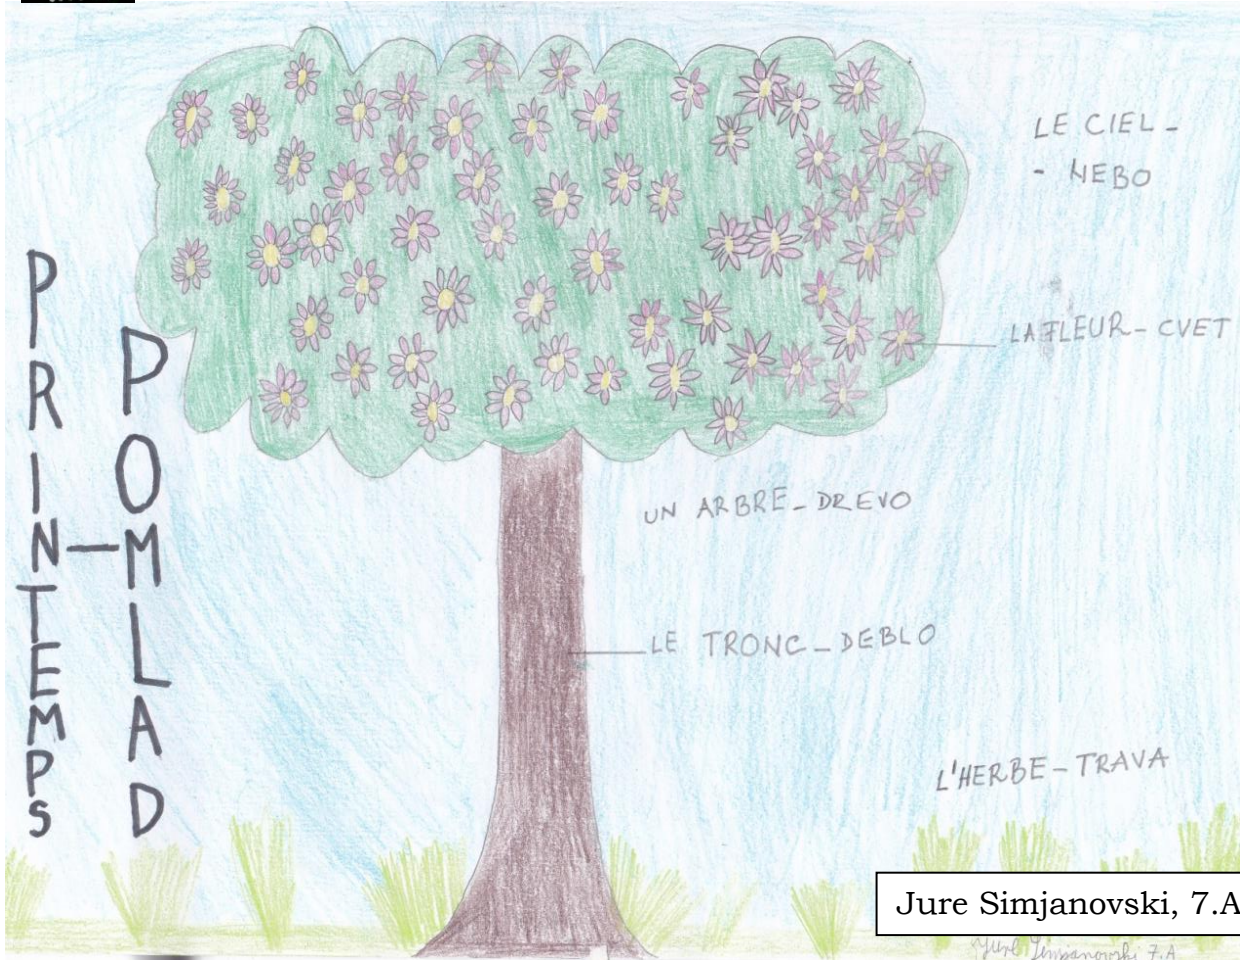 PRINTEMPS — POMLAD
LE CIEL -
- NEBO
LA FLEUR - CVET
UN ARBRE - DREVO
LE TRONC - DEBLO
L'HERBE - TRAVA
Jure Simjanovski, 7.A
Jure Simjanovski 7.A